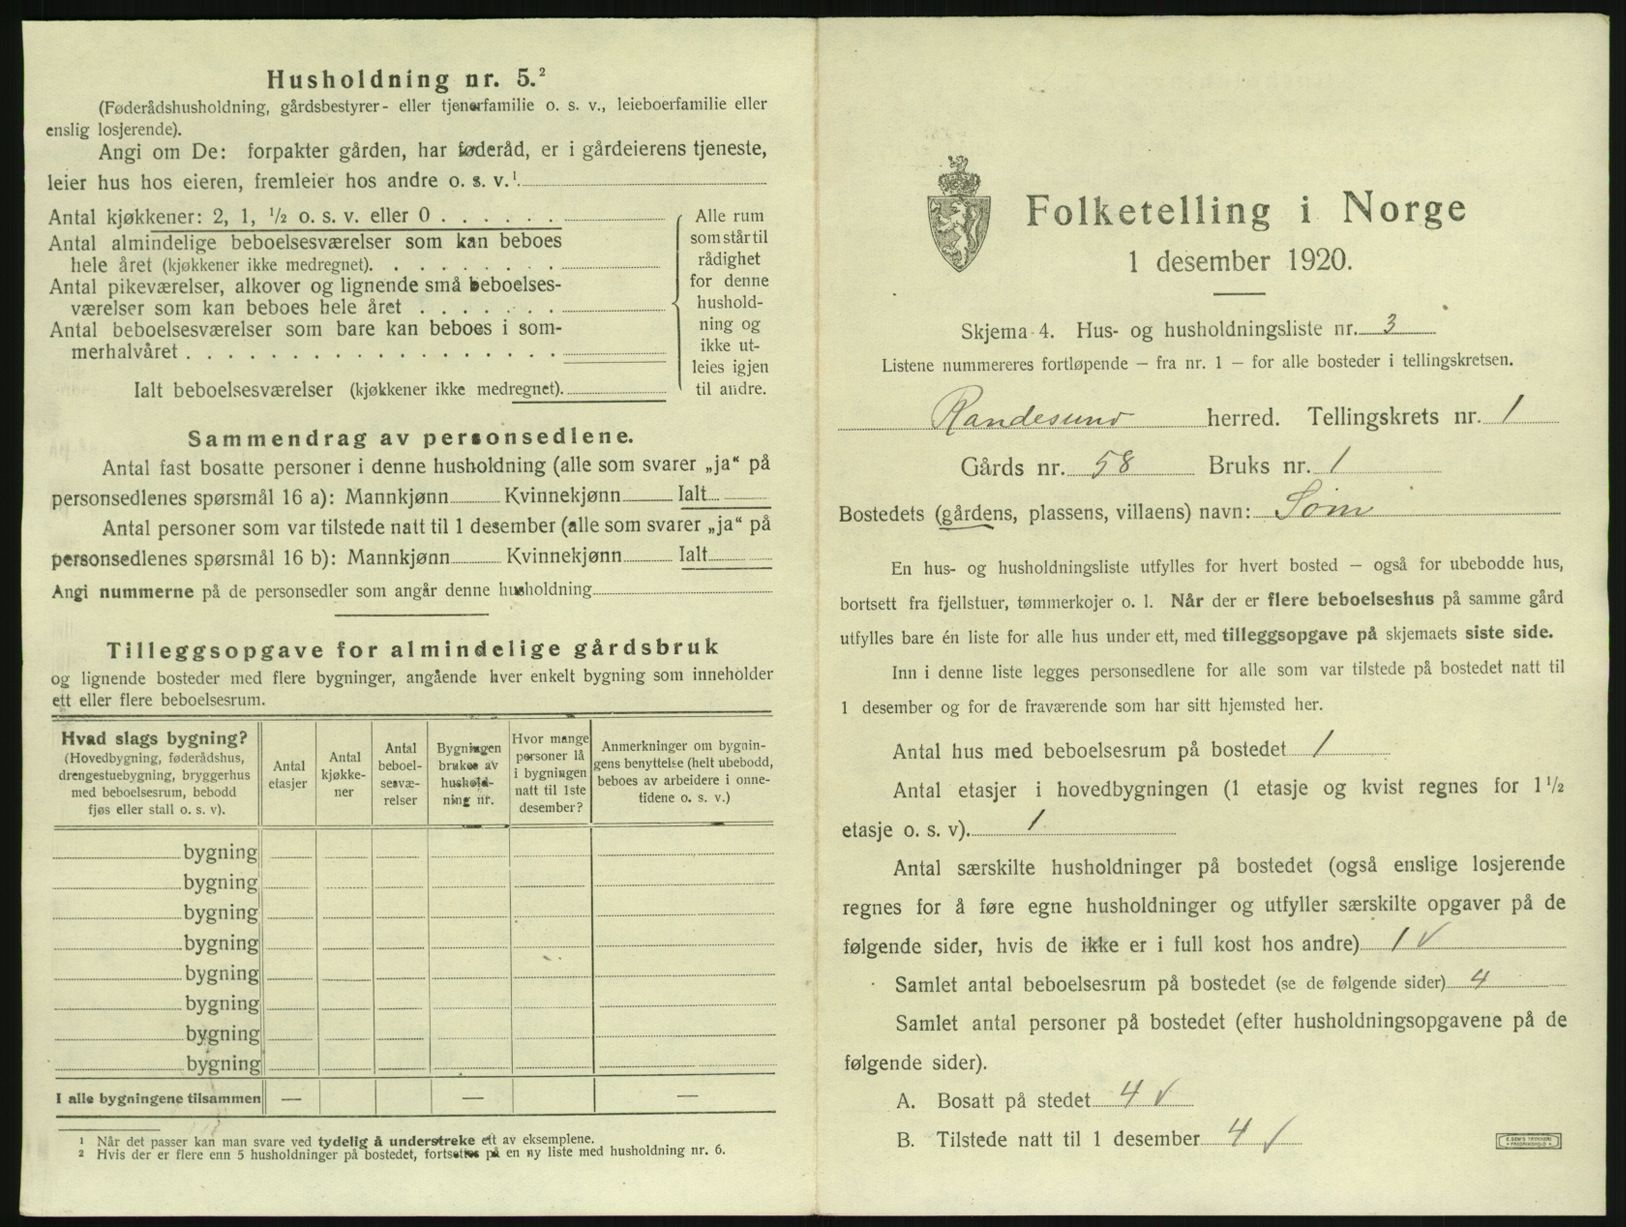 Husholdning nr. 5.²
(Føderådshusholdning, gårdsbestyrer- eller tjenerfamilie o. s. v., leieboerfamilie eller
enslig losjerende).
Angi om De: forpakter gården, har føderåd, er i gårdeierens tjeneste,
leier hus hos eieren, fremleier hos andre o. s. v.¹
Antal kjøkkener: 2, 1, ½ o. s. v. eller 0
Antal almindelige beboelsesværelser som kan beboes
hele året (kjøkkener ikke medregnet).
Antal pikeværelser, alkover og lignende små beboelses-
værelser som kan beboes hele året
Antal beboelsesværelser som bare kan beboes i som-
merhalvåret
Ialt beboelsesværelser (kjøkkener ikke medregnet).
Alle rum
som står til
rådighet
for denne
hushold-
ning og
ikke ut-
leies igjen
til andre.
Sammendrag av personsedlene.
Antal fast bosatte personer i denne husholdning (alle som svarer „ja“ på
personsedlenes spørsmål 16 a): Mannkjønn Kvinnekjønn Ialt
Antal personer som var tilstede natt til 1 desember (alle som svarer „ja“ på
personsedlenes spørsmål 16 b): Mannkjønn Kvinnekjønn Ialt
Angi nummerne på de personsedler som angår denne husholdning
Tilleggsopgave for almindelige gårdsbruk
og lignende bosteder med flere bygninger, angående hver enkelt bygning som inneholder
ett eller flere beboelsesrum.
Hvad slags bygning?
(Hovedbygning, føderådshus,
drengestuebygning, bryggerhus
med beboelsesrum, bebodd
fjøs eller stall o. s. v).
Antal
etasjer
Antal
kjøkke-
ner
Antal
beboel-
sesvæ-
relser
Bygningen
brukes av
hushold-
ning nr.
Hvor mange
personer lå
i bygningen
natt til 1ste
desember?
Anmerkninger om bygnin-
gens benyttelse (helt ubebodd,
beboes av arbeidere i onne-
tidene o. s. v.)
bygning
bygning
bygning
bygning
bygning
bygning
bygning
bygning
I alle bygningene tilsammen — — —
¹ Når det passer kan man svare ved tydelig å understreke ett av eksemplene.
² Hvis der er flere enn 5 husholdninger på bostedet, fortsettes på en ny liste med husholdning nr. 6.
Folketelling i Norge
1 desember 1920.
Skjema 4. Hus- og husholdningsliste nr. 3
Listene nummereres fortløpende – fra nr. 1 – for alle bosteder i tellingskretsen.
Randesund herred. Tellingskrets nr. 1
Gårds nr. 58 Bruks nr. 1
Bostedets (gårdens, plassens, villaens) navn: Søm
En hus- og husholdningsliste utfylles for hvert bosted – også for ubebodde hus,
bortsett fra fjellstuer, tømmerkojer o. l. Når der er flere beboelseshus på samme gård
utfylles bare én liste for alle hus under ett, med tilleggsopgave på skjemaets siste side.
Inn i denne liste legges personsedlene for alle som var tilstede på bostedet natt til
1 desember og for de fraværende som har sitt hjemsted her.
Antal hus med beboelsesrum på bostedet 1
Antal etasjer i hovedbygningen (1 etasje og kvist regnes for 1½
etasje o. s. v). 1
Antal særskilte husholdninger på bostedet (også enslige losjerende
regnes for å føre egne husholdninger og utfyller særskilte opgaver på de
følgende sider, hvis de ikke er i full kost hos andre) 1 ✓
Samlet antal beboelsesrum på bostedet (se de følgende sider) 4
Samlet antal personer på bostedet (efter husholdningsopgavene på de
følgende sider).
A. Bosatt på stedet 4 ✓
B. Tilstede natt til 1 desember 4 ✓